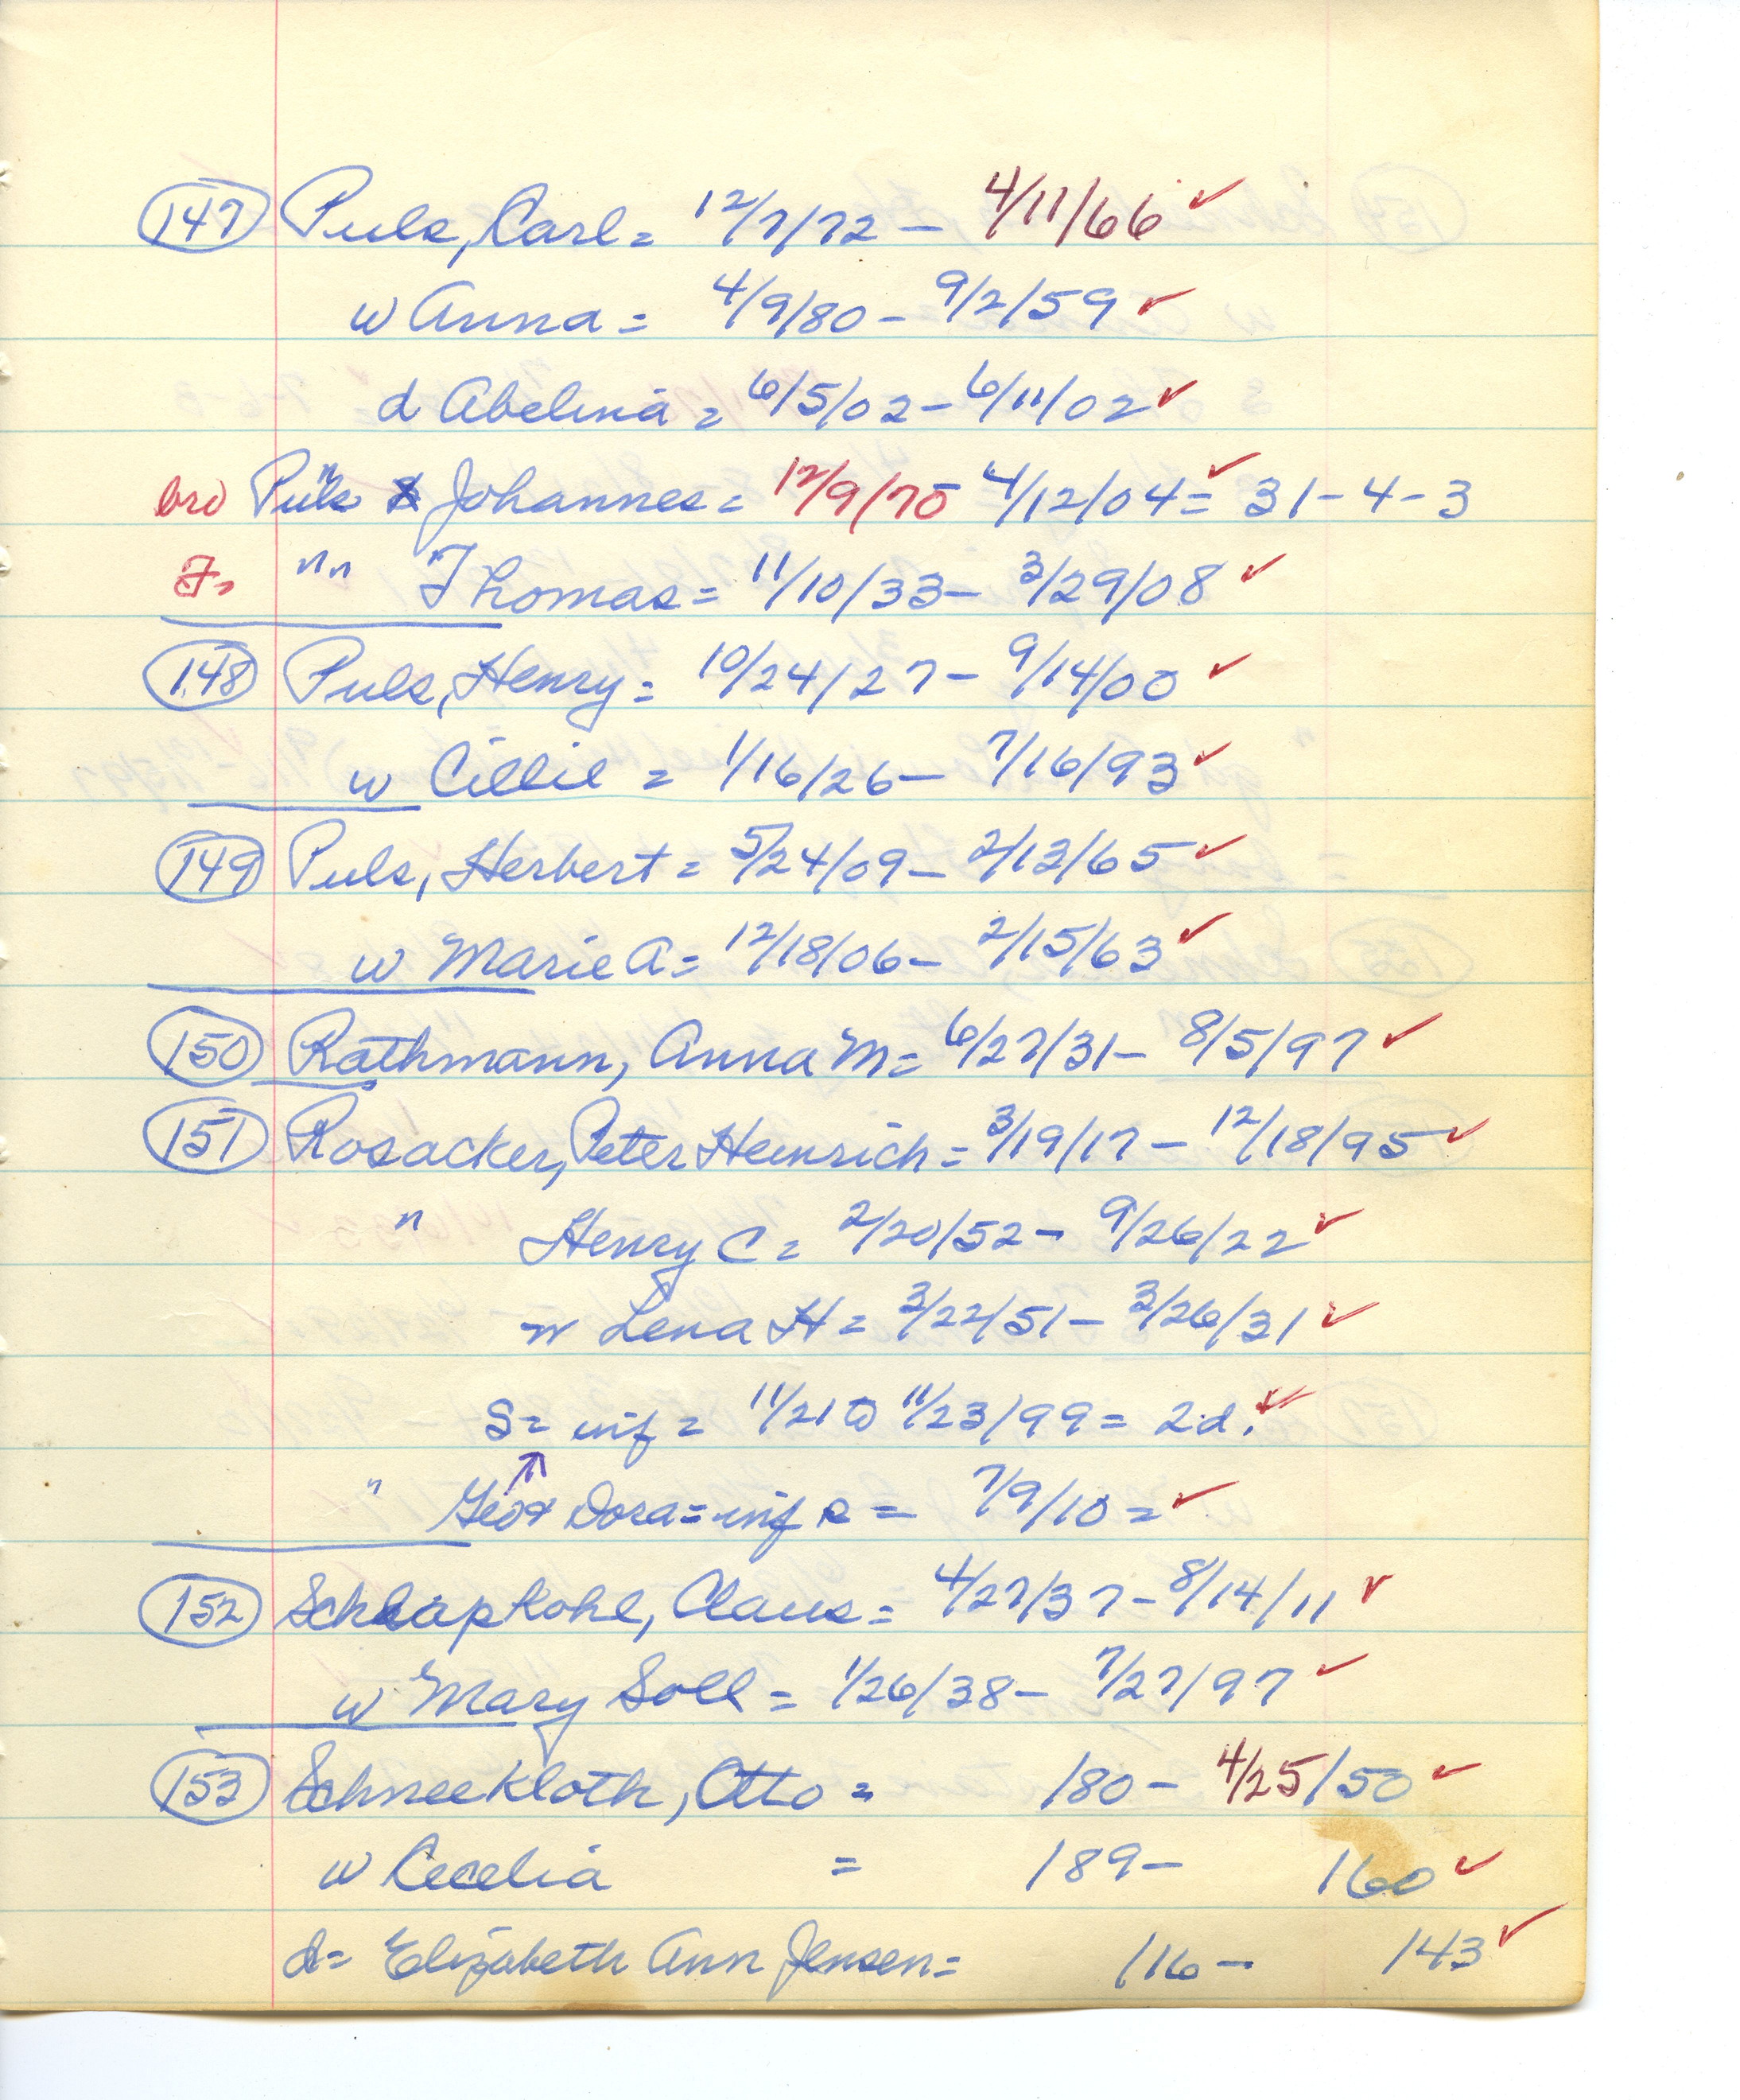 147 Puls, Carl = 12/7/72 - 4/11/66 ✓
w Anna = 4/9/80 - 9/2/59 ✓
d Abelina = 6/5/02 - 6/11/02 ✓
bro Puls Johannes = 12/9/70 4/12/04 = ✓ 31-4-3
F= " " Thomas = 11/10/33 - 3/29/08 ✓
148 Puls, Henry = 10/24/27 - 9/14/00 ✓
w Cillie = 1/16/26 - 7/16/93 ✓
149 Puls, Herbert = 5/24/09 - 2/13/65 ✓
w Marie A = 12/18/06 - 2/15/63 ✓
150 Rathmann, Anna M = 6/27/31 - 8/5/97 ✓
151 Rosacker, Peter Heinrich = 3/19/17 - 12/18/95 ✓
" Henry C = 2/20/52 - 9/26/22 ✓
w Lena H = 3/22/51 - 3/26/31 ✓
S = inf = 11/21 to 11/23/99 = 2d. ✓
" Geo + Dora = inf = 7/9/10 = ✓
152 Schlapkohl, Claus = 4/27/37 - 8/14/11 ✓
w Mary Soll = 1/26/38 - 7/27/97 ✓
153 Schneekloth, Otto = /80 - 4/25/50 ✓
w Cecelia = /89 - /60 ✓
d = Elizabeth Ann Jensen = /16 - /43 ✓